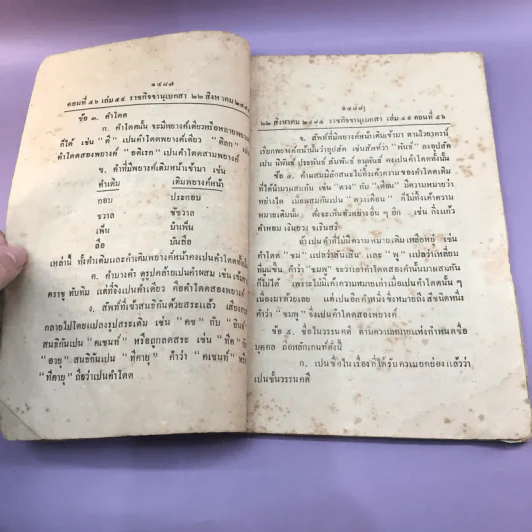 ๑๔๘๗
ตอนที่ ๔๖ เล่ม ๕๕ ราชกิจจานุเบกสา ๒๒ สิงหาคม
ข้อ ๓. คำโดด
ก. คำโดดนั้น จะมีพยางค์เดียวหรือหลายพยางค์
ก็ได้ เช่น
คำโดดสองพยางค์ "อติเรก" เปนคำโดดสามพยางค์
ข. คำที่มีพยางค์เติมหน้าเข้ามา เช่น
คำเดิม เติมพยางค์หน้า
กอบ ประกอบ
ชวาล ชัชวาล
เพ็ญ บำเพ็ญ
ลือ บันลือ
เหล่านี้ ทั้งคำเดิมและคำเติมพยางค์หน้าคงเปนคำโดดทั้งนั้น
ค. คำบางคำ ดูรูปคล้ายเปนคำผสม เช่น
ตราชู ทับทิม แต่ที่จิงเปนคำเดียว คือคำโดดสองพยางค์
ง. สัพท์ที่เข้าสนธิกันด้วยสระแล้ว เสียง
กลายไปโดยแปลงรูปสระเดิม เช่น "คช" กับ "อินท์"
สนธิกันเปน "คเชนท์" หรือลูกลดสระ เช่น "ทีค" กับ
"อายุ" สนธิกันเปน "ทีคายุ" คำว่า "คเชนท์" หรือ
"ทีคายุ" ถือว่าเปนคำโดด
๒๒ สิงหาคม ๒๔๘๑ ราชกิจจานุเบกสา เล่ม ๕๕ ตอนที่ ๔๖
จ. สัพท์ที่มีพยางค์หน้าเติมเข้ามา ตามไวยากรณ์
เรียกพยางค์หน้านั้นว่าอุปสัค เช่นสัพท์ว่า "พันธ์" ลงอุปสัค
เปน นิพันธ์ ประพันธ์ สัมพันธ์ อนุพันธ์ คงเปนคำโดดทั้งนั้น
ข้อ ๔. คำผสมมีลักสนะดั่งที่เค้าความของคำโดดเดิม
ที่ได้นำมาผสมกัน เช่น "ดวง" กับ "เดือน" มีความหมายว่า
หย่างใด เมื่อผสมกันเปน "ดวงเดือน" ก็ไม่ทิ้งเค้าความ
หมายเดิมนั้น ดั่งจะเห็นตัวหย่างอื่น ๆ อีก เช่น กิ่งแก้ว
คำหอม เงินยวง จเรินสรี
ถ้าเปนคำที่ไม่มีความหมายเดิม เหลือหยู่ เช่น
คำโดด "ชม" แปลว่าสันเสิน และ "พู่" แปลว่า
จะว่าเอาคำโดดสองคำนั้นมาผสมกัน
ก็ไม่ได้ เพราะไม่มีเค้าความหมายเก่าเมื่อเปนคำโดดนั้น ๆ
เนื่องมาด้วยเลย แต่เปนอีกคำหนึ่งซึ่งหมายถึงสีชนิดหนึ่ง
คำว่า "ชมพู" จึงเปนคำโดดสองพยางค์
ข้อ ๕. ชื่อในวรรนคดี ตามความหมายแห่งกำหนดชื่อ
บุคคล ถือหลักเกนท์ดั่งนี้
ก. เปนชื่อในเรื่องที่ได้รับความยกย่องแล้วว่า
เปนชั้นวรรนคดี